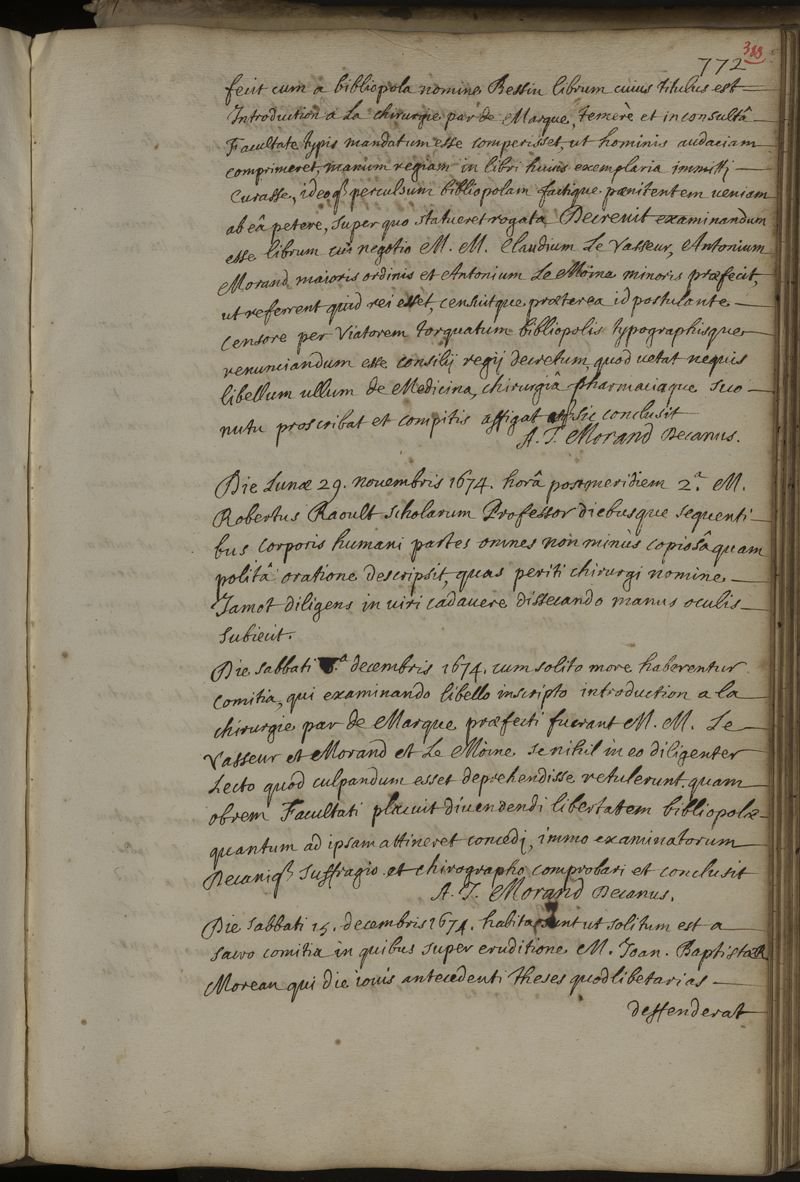 388
772
fecit cum a bibliopola nomine Bessin librum cuius titulus est
Introduction a La chirurgie par de Marque, temerè et inconsultâ
Facultate typis mandatum esse comperisset, ut hominis audaciam
comprimeret, manum regiam in libri huius exemplaria immitti
Curasse, ideoq perculsum bibliopolam factique pænitentem veniam
ab eâ petere, super quo statueret rogata Decrevit examinandum
esse librum cui negotio M. M. Claudium Le Vasseur, Antonium
Morand maioris ordinis et Antonium Le Moine minoris præfecit,
ut referrent quid rei esset, censuitque præterea id postulante
Censore per Viatorem torquatum bibliopolis typographisque
renunciandum esse consilij regij decretum, quod vetat nequis
libellum ullum de Medicina, chirurgiâ pharmaciaque suo
nutu proscribat et compitis affigat sic conclusit
A. J. Morand Decanus.
Die Lunæ 29. novembris 1674. horâ postmeridiem 2.a M.
Robertus Raoult scholarum Professor diebusque sequenti
bus corporis humani partes omnes non minùs copiosâ quam
politâ oratione descripsit, quas periti chirurgi nomine
Jamot diligens in viri cadavere dissecando manus oculis
subiecit.
Die sabbati decembris 1674. cum solito more haberentur
comitia, qui examinando libello inscripto introduction a la
chirurgie par de Marque præfecti fuerant M. M. Le
Vasseur et Morand et Le Moine se nihil in eo diligenter
Lecto quod culpandum esset deprehendisse retulerunt. quam
obrem Facultati placuit divendendi libertatem bibliopolæ
quantum ad ipsam attineret concedj, immo examinatorum
Decaniq suffragio et chirographo comprobari et conclusit
A. J. Morand Decanus.
Die sabbati 15. decembris 1674. habita sunt ut solitum est a
sacro comitia in quibus super eruditione M. Joan. Baptistæ
Moreau qui die iovis antecedenti theses quodlibetarias
deffenderat